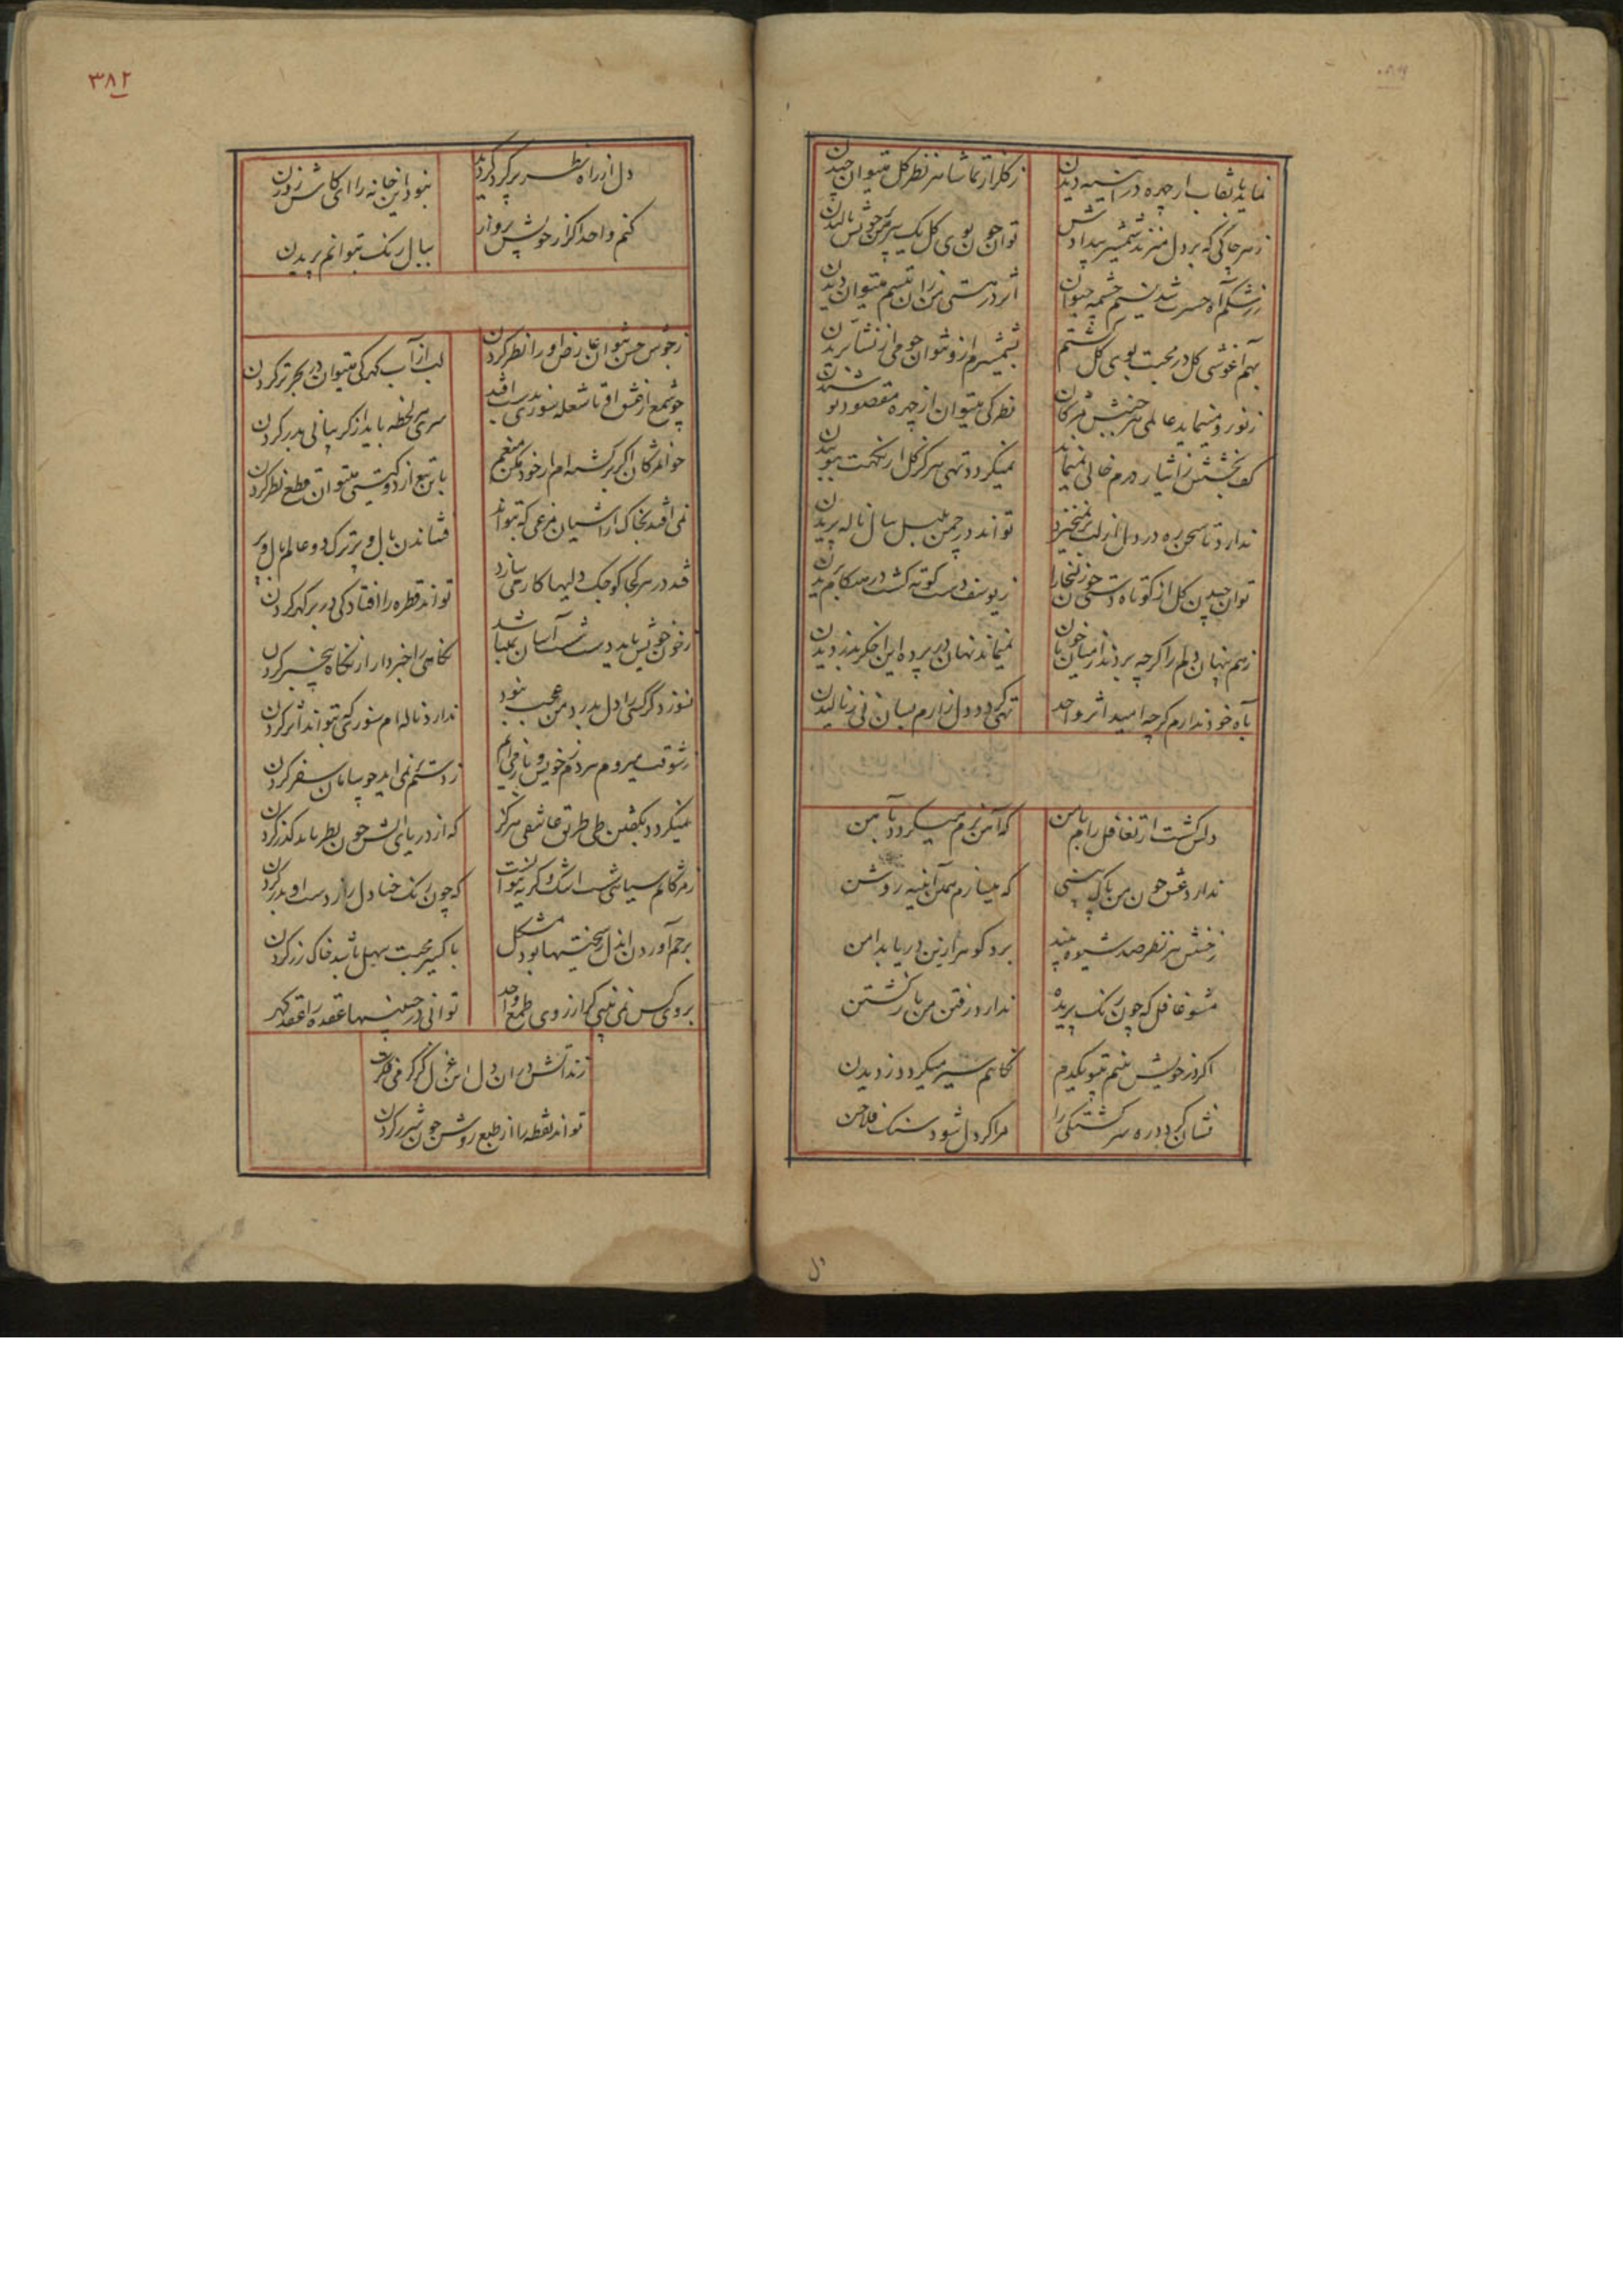 نماید با نقاب از چهره در آیینه دیدن
ز گلزار تماشا هر نظر گل میتوان چیدن
ز هر چاکی که بر دل میزند شمشیر بیدادش
توان چون بوی گل یک پیرهن بر خویش بالیدن
ز رشکم آه حسرت شد نسیم چشمه حیوان
اثر در هستی من زان تبسم میتوان دیدن
بهم آغوشی گل در محبت بوی گل گشتم
بشمشیرم ازو نتوان چو می از نشأ بریدن
نظر کی میتوان از چهره مقصود تو
کف بخشش ز ایثار درم خالی نمیماند
نمیگردد تهی هرگز گل از نکهت ببوییدن
ندارد تا سخن ره در دل از لب برنمیخیزد
تواند در چمن بلبل ببال ناله پریدن
توان چیدن گل از کوتاه دستی چون زلیخا را
ز یوسف دست کوته گشت در هنگام
ز هم پنهان دلم را گرچه بردند از میان خوبان
نمیماند نهان در پرده این اخگر بدزدیدن
بآه خود ندارم گرچه امید اثر واحد
تهی گردد دل زارم بسان نی ز نالیدن
دلش گشت از تغافل رام با من
که آهن نرم میگردد بآهن
ندارد عشق چون من پاک بینی
که میسازم بمکس آیینه روشن
ز خشش هر نظر صد شیوه میند
برد گوهر ازین دریا بدامن
مشو غافل که چون رنگ پریده
ندارد رفتن من بازگشتن
اگر از خویش بینم میتو یکدم
نگاهم سیر میگردد ز دیدن
نشان گردد ره سرگشتگی را
مرا گر دل شود سنگ فلاخن
دل
۳۸۲
دل از راه نظر بر گرد گردید
نبود این خانه را ای کاش روزن
کنم واحد اگر از خویش پرواز
ببال رنگ بتوانم پریدن
ز جوش حسن نتوان عارض او را نظر کردن
لب از آب گهر کی میتوان در بحر تر کردن
چو شمع از عشق او تا شعله شوری بدست افتد
سری هر لحظه باید از گریبانی بدر کردن
چو مژگان اگر برگشته‌ام از خود مکن منعم
باین تیغ از دو گیتی میتوان قطع نظر کردن
نمی افتد بخاک از آشیان مرغی که بتواند
فشاندن بال و پر ترک دو عالم بال و پر
فتد در هر کجا کوچک دلیها کار می سازد
تواند قطره را افتادگی در بر گهر کردن
ز خون خویش باید دست شست آسان نمیباشد
نگاهی را خبردار از نگاه بیخبر کردن
نسوزد گر کسی را دل بدرد من عجب نبود
ندارد ناله‌ام شوری که بتواند اثر کردن
ز شوقت میروم هر دم ز خویش و باز می‌آیم
ز دستم نمی آید چو سامان سفر کردن
نمیگردد بگفتن طی طریق عاشقی هرگز
که از دریای آتش چون بط باید گذر کردن
ز مژگانم سیاهی شست اشک و گریه نتوانست
که چون رنگ حنا دل را ز دست او بدر کردن
برحم آوردن آن دل ز سختیها بود مشکل
باکسیر محبت سهل باشد خاک زر کردن
بروی کس نمی بینی گر از روی طمع واحد
توانی در جبینها عقده را عقد گهر
زند آتش در آن دل این غزل گر گرمی فکرت
تواند نقطه را از طبع روشن چون شرر کردن